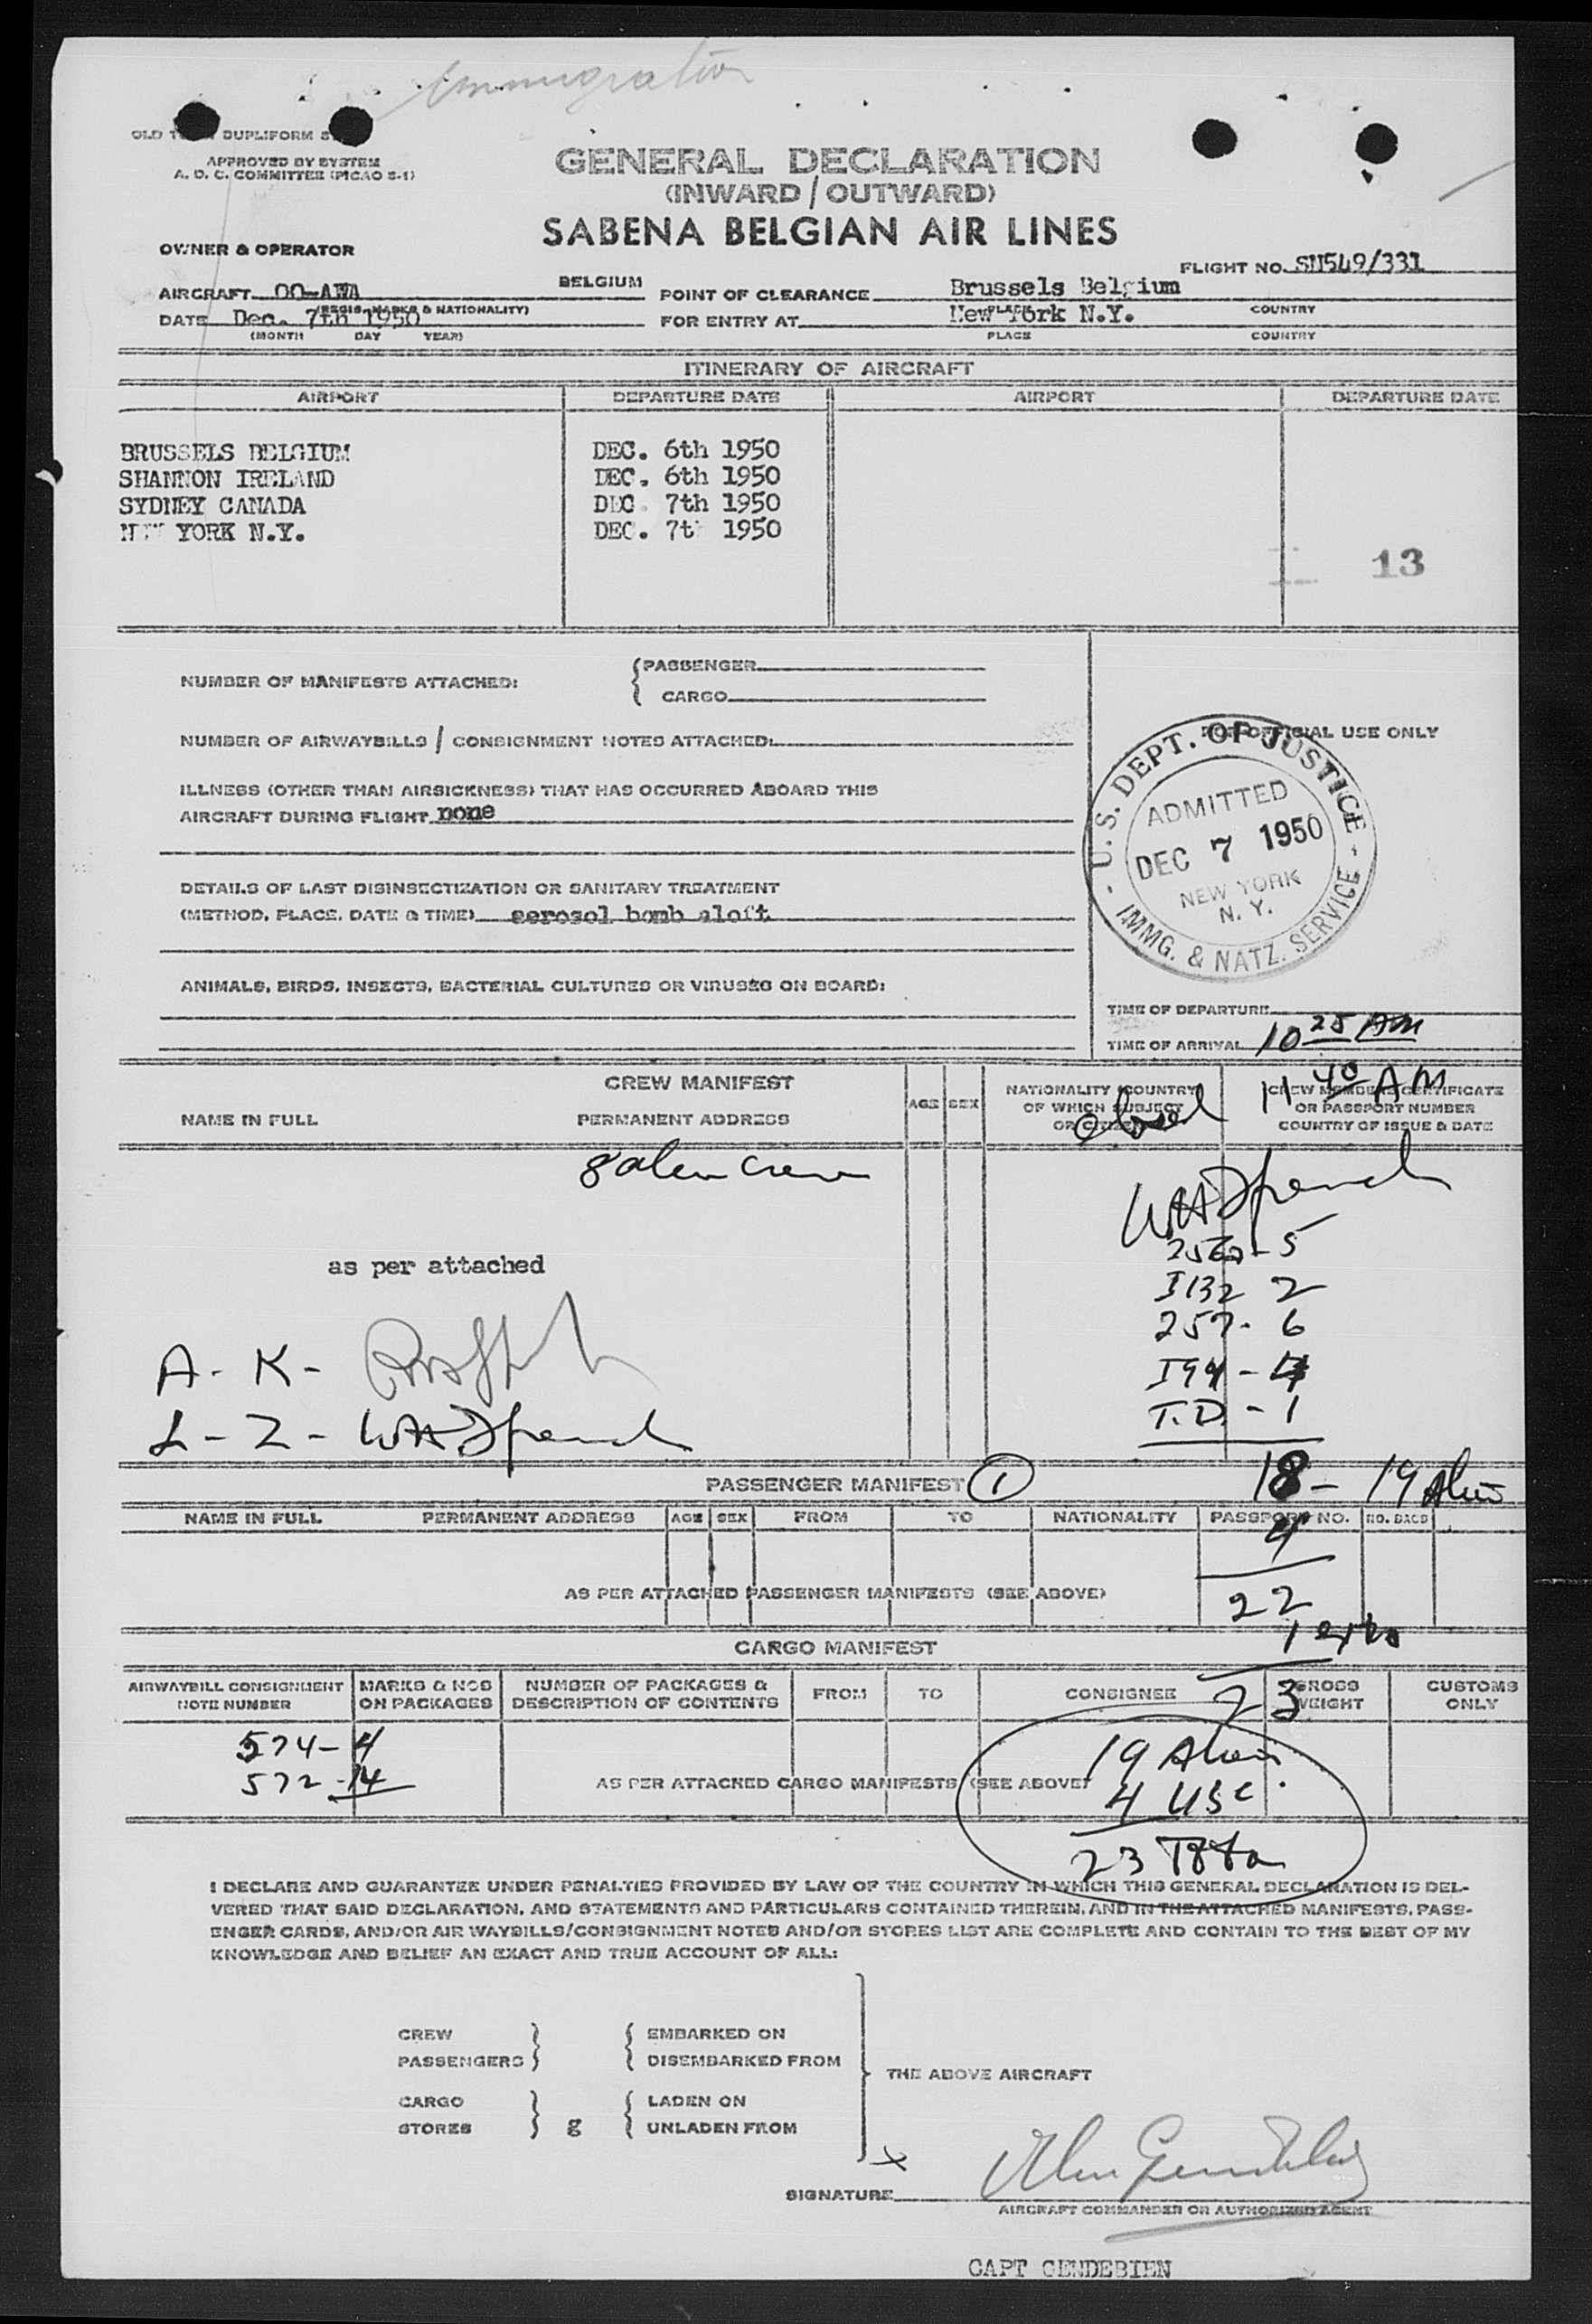 Immigration
OLD TOWN DUPLIFORM
APPROVED BY SYSTEM
A. D. C. COMMITTEE (PICAO S-1)
GENERAL DECLARATION
(INWARD / OUTWARD)
SABENA BELGIAN AIR LINES
OWNER & OPERATOR
FLIGHT NO. SN549/331
AIRCRAFT OO-AWA BELGIUM POINT OF CLEARANCE Brussels Belgium
(REGIS. MARKS & NATIONALITY) PLACE COUNTRY
DATE Dec. 7th 1950 FOR ENTRY AT New York N.Y.
(MONTH DAY YEAR) PLACE COUNTRY
ITINERARY OF AIRCRAFT
AIRPORT DEPARTURE DATE AIRPORT DEPARTURE DATE
BRUSSELS BELGIUM DEC. 6th 1950
SHANNON IRELAND DEC. 6th 1950
SYDNEY CANADA DEC. 7th 1950
NEW YORK N.Y. DEC. 7th 1950
13
NUMBER OF MANIFESTS ATTACHED: PASSENGER
CARGO
FOR OFFICIAL USE ONLY
NUMBER OF AIRWAYBILLS / CONSIGNMENT NOTES ATTACHED:
ILLNESS (OTHER THAN AIRSICKNESS) THAT HAS OCCURRED ABOARD THIS
AIRCRAFT DURING FLIGHT none
U.S. DEPT. OF JUSTICE
ADMITTED
DEC 7 1950
NEW YORK
N. Y.
IMMG. & NATZ. SERVICE
DETAILS OF LAST DISINSECTIZATION OR SANITARY TREATMENT
(METHOD, PLACE, DATE & TIME) aerosol bomb aloft
ANIMALS, BIRDS, INSECTS, BACTERIAL CULTURES OR VIRUSES ON BOARD:
TIME OF DEPARTURE
TIME OF ARRIVAL 10 25 AM
CREW MANIFEST
NAME IN FULL PERMANENT ADDRESS AGE SEX
NATIONALITY (COUNTRY
OF WHICH SUBJECT
OR CITIZEN)
CREW MEMBERS CERTIFICATE
OR PASSPORT NUMBER
COUNTRY OF ISSUE & DATE
closed 11 40 AM
8 alien crew
WHFrench
as per attached
256a - 5
I132 2
257 - 6
I94 - 4
T.D. - 1
A - K -
L - Z - WHFrench
18 - 19 Alien
PASSENGER MANIFEST 1
NAME IN FULL PERMANENT ADDRESS AGE SEX FROM TO NATIONALITY PASSPORT NO. NO. BAGS
4
AS PER ATTACHED PASSENGER MANIFESTS (SEE ABOVE)
22
1 extra
23
CARGO MANIFEST
AIRWAYBILL CONSIGNMENT
NOTE NUMBER
MARKS & NOS
ON PACKAGES
NUMBER OF PACKAGES &
DESCRIPTION OF CONTENTS
FROM TO CONSIGNEE
GROSS
WEIGHT
CUSTOMS
ONLY
574 - 4
572 - 14
AS PER ATTACHED CARGO MANIFESTS (SEE ABOVE)
19 Alien
4 USC
23 Total
I DECLARE AND GUARANTEE UNDER PENALTIES PROVIDED BY LAW OF THE COUNTRY IN WHICH THIS GENERAL DECLARATION IS DEL-
VERED THAT SAID DECLARATION, AND STATEMENTS AND PARTICULARS CONTAINED THEREIN, AND IN THE ATTACHED MANIFESTS, PASS-
ENGER CARDS, AND/OR AIR WAYBILLS/CONSIGNMENT NOTES AND/OR STORES LIST ARE COMPLETE AND CONTAIN TO THE BEST OF MY
KNOWLEDGE AND BELIEF AN EXACT AND TRUE ACCOUNT OF ALL:
CREW EMBARKED ON
PASSENGERS DISEMBARKED FROM
THE ABOVE AIRCRAFT
CARGO LADEN ON
STORES g UNLADEN FROM
x
SIGNATURE
AIRCRAFT COMMANDER OR AUTHORIZED AGENT
CAPT GENDEBIEN